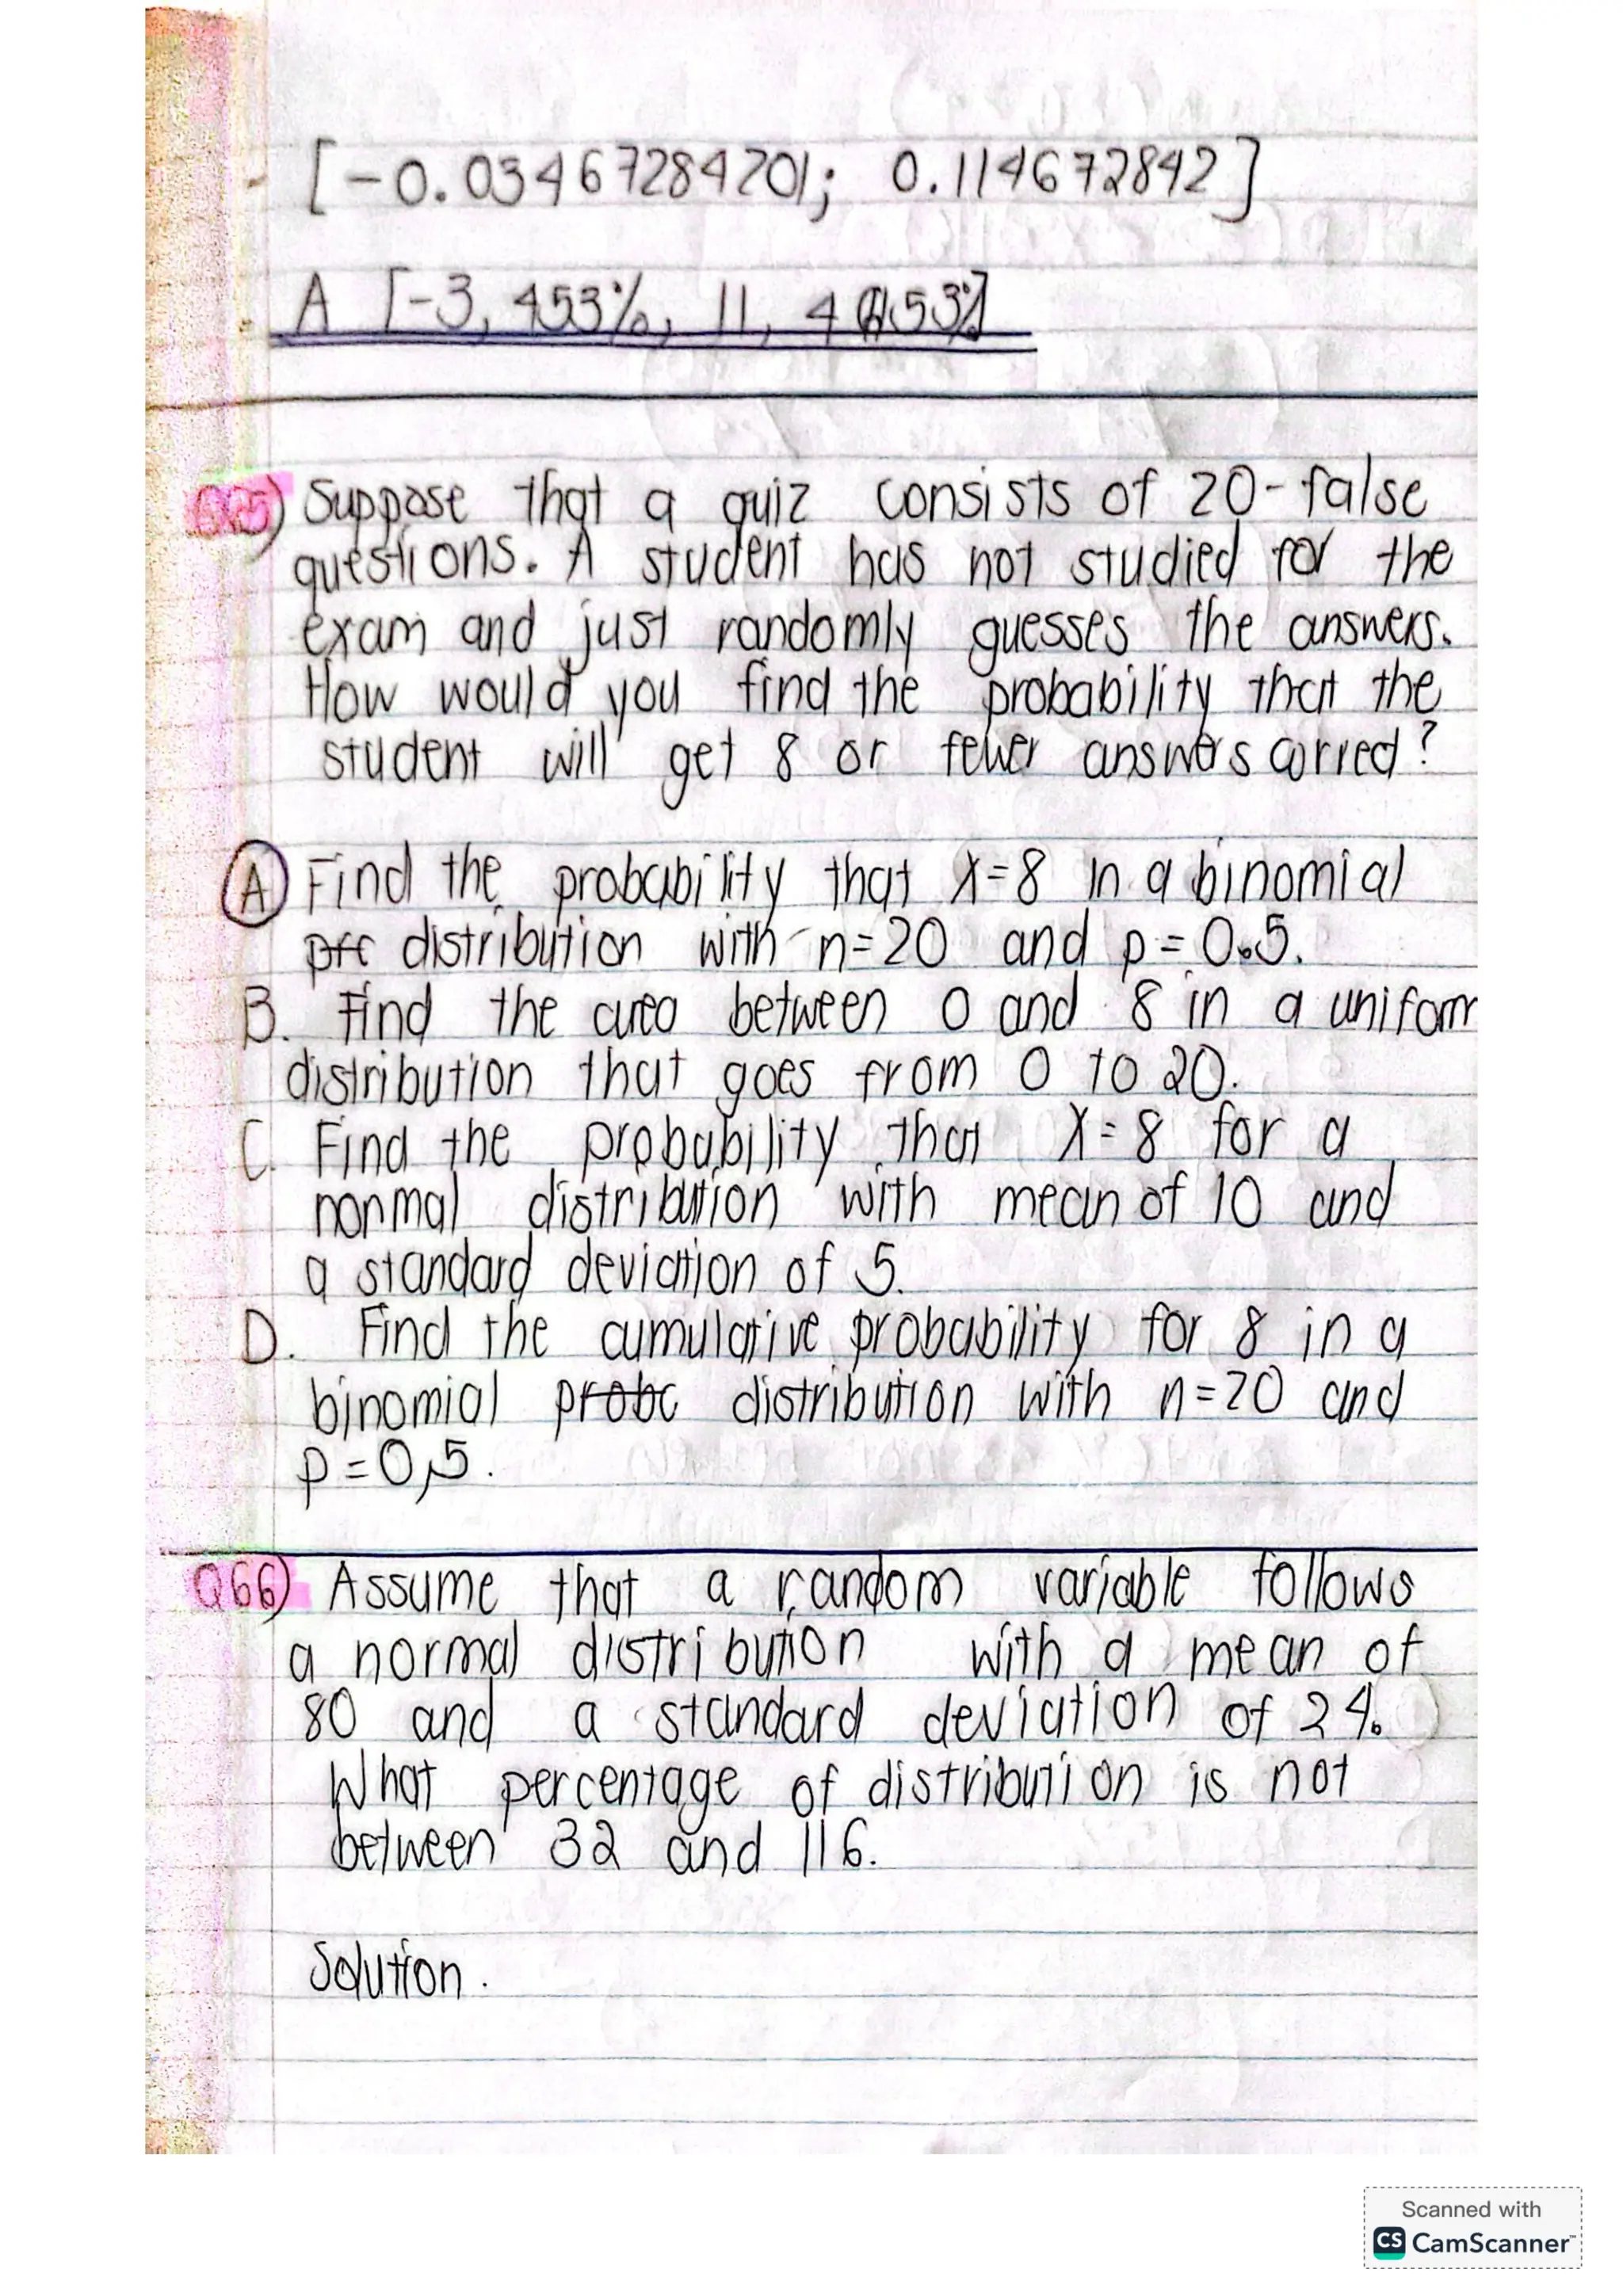 [-0.03467284201; 0.114672842]
A [-3,453%, 11,453%]
Suppose that a quiz consists of 20-false
questions. A student has not studied for the
exam and just randomly guesses the answers.
How would you find the probability that the
student will get 8 or fewer answers correct?
A) Find the probability that X=8 in a binomial
distribution with n=20 and p=0.5.
B. Find the area between 0 and 8 in a uniform
distribution that goes from 0 to 20.
C. Find the probability that X=8 for a
normal distribution with mean of 10 and
a standard deviation of 5.
D. Find the cumulative probability for 8 in a
binomial probc distribution with n=20 and
p=0,5.
Q66) Assume that a random variable follows
a normal distribution with a mean of
80 and a standard deviation of 24.
What percentage of distribution is not
between 32 and 116.
Solution.
Scanned with
CS CamScanner™